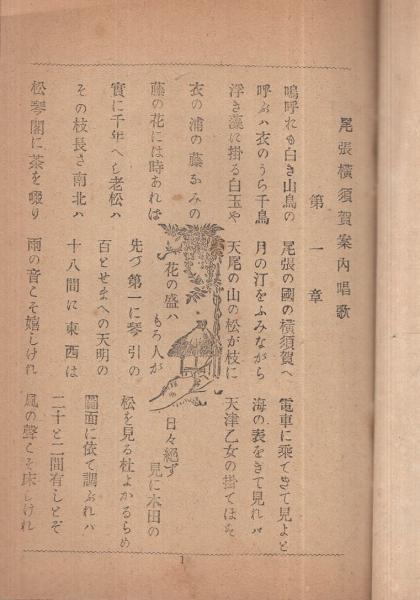 尾張橫須賀案內唱歌
第一章
嗚呼れも白き山鳥の 尾張の國の橫須賀へ 電車に乘てきて見よと
呼ぶハ衣のうら千鳥 月の汀をふみながら 海の表をきて見れバ
浮き藻に掛る白玉や 天尾の山の松が枝に 天津乙女の掛てほそ
衣の浦の藤なみの
藤の花には時あれば 花の盛ハ もろ人が 日々絕ず 見に木田の
實に千年へし老松ハ 先づ第一に琴引の 松を見る杜よかるらめ
その枝長さ南北ハ 百とせまへの天明の 圖面に依て調ぶれハ
十八間に東西は 二十と二間有しとぞ
松琴閣に茶を啜り 雨の音こそ嬉しけれ 風の聲こそ床しけれ
1